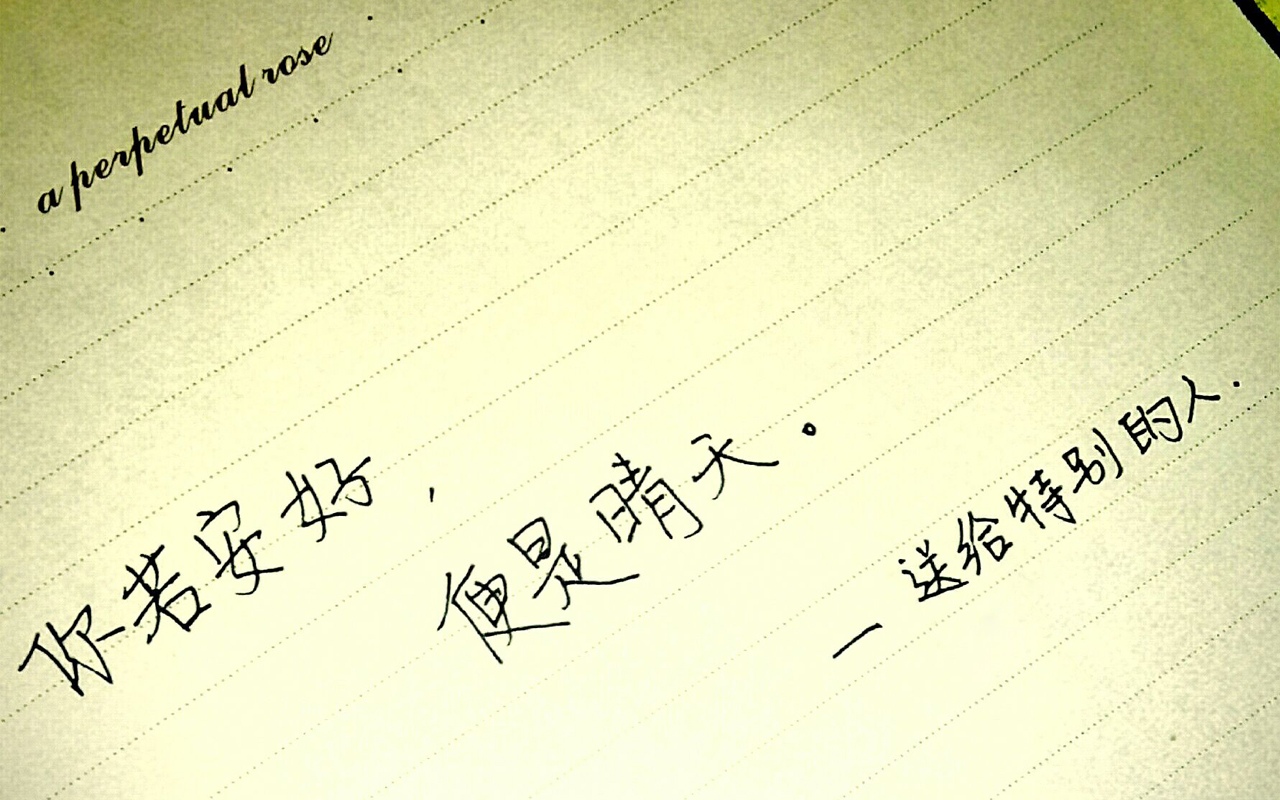 a perpetual rose
你若安好，
便是晴天。
—送给特别的人.